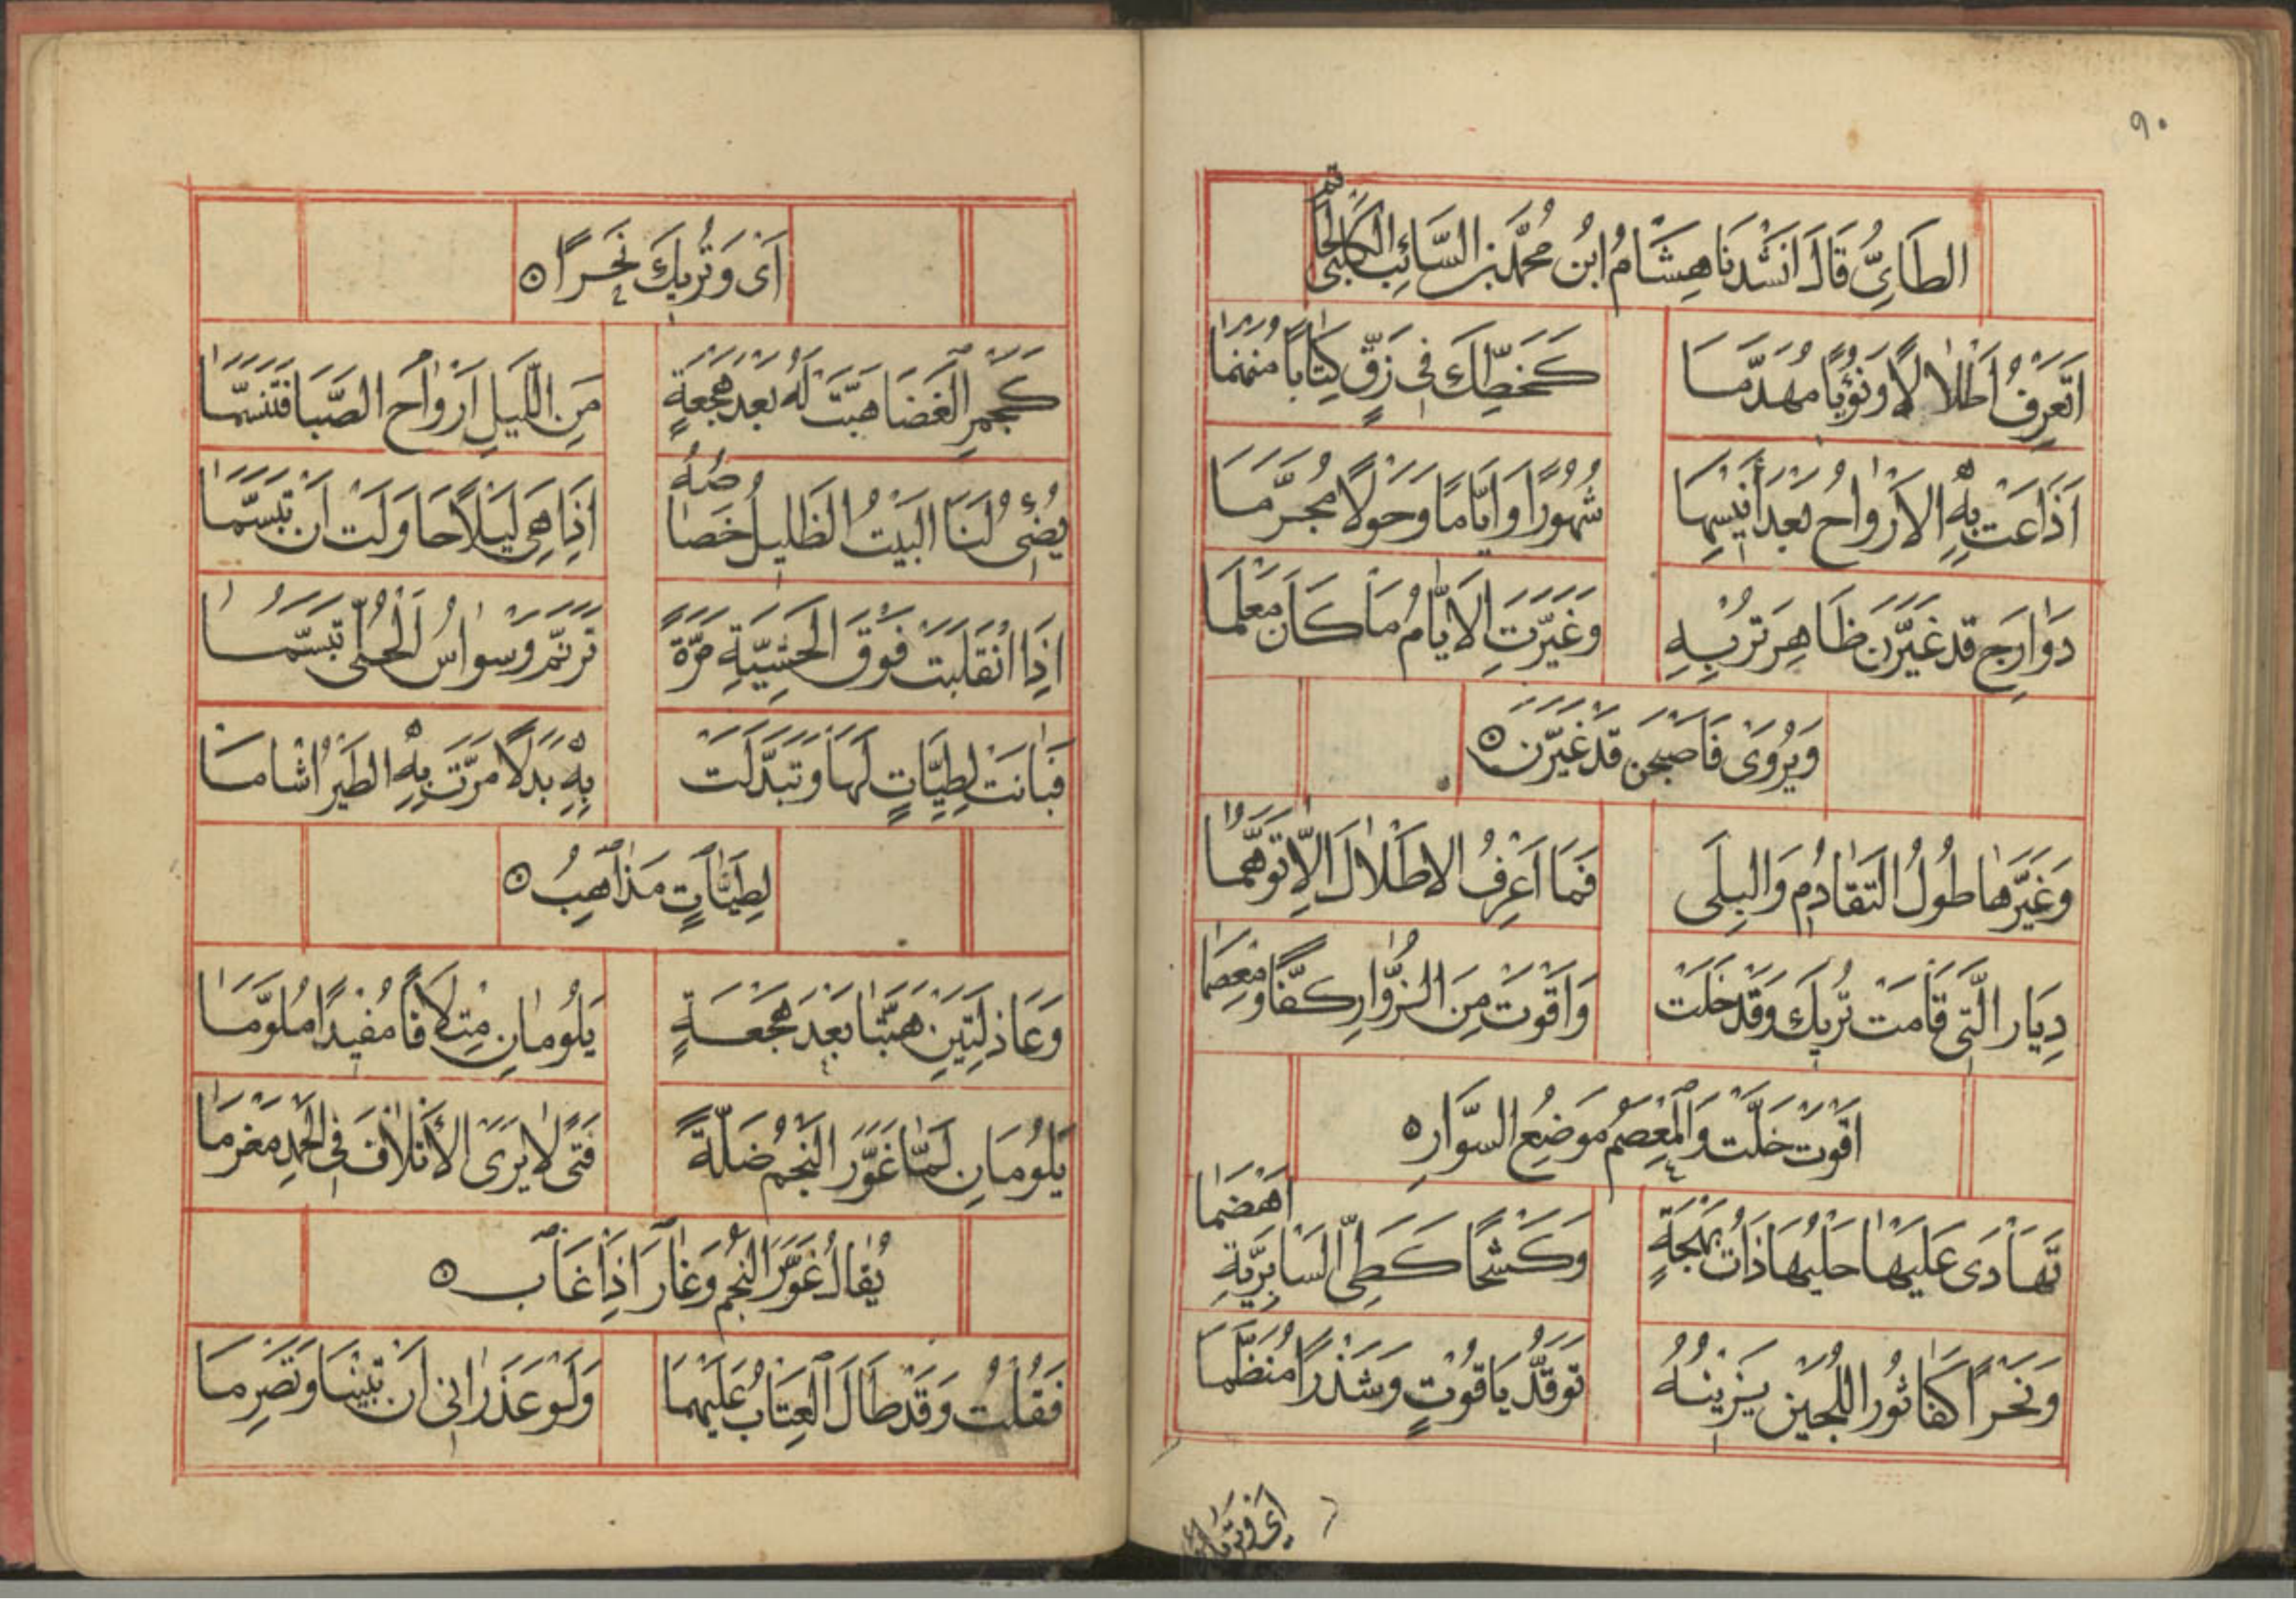 ٩٠
الطَائِيُّ قَالَ اَنْشَدَنَا هِشَامُ ابْنُ مُحَمَّد بْنِ السَّائِبِ الْكَلْبِيُّ
اَتَعرِفُ اَطْلَالًا وَنُؤْيًا مُهَدَّمَا كَخَطِّكَ فِى رَقٍّ كِتَابًا مُنَمْنَمَا
اَذَاعَتْ بِهِ الْاَرْوَاحُ بَعْدَ اَنِيسِهَا شُهُورًا وَاَيَّامًا وَحَوْلًا مُجَرَّمَا
دَوَارِجُ قَدْ غَيَّرْنَ ظَاهِرَ تُرْبِهِ وَغَيَّرَتِ الْاَيَّامُ مَا كَانَ مُعْلَمَا
وَيُرْوَى فَاَصْبَحْنَ قَدْ غَيَّرْنَ
وَغَيَّرَهَا طُولُ التَّقَادُمِ وَالْبِلَى فَمَا اَعْرِفُ الْاَطْلَالَ اِلَّا تَوَهُّمَا
دِيَار الَّتِى قَامَتْ تُرِيكَ وَقَدْ خَلَتْ وَاَقْوَتْ مِنَ الزُّوَّارِ كَفًّا وَمِعْصَمَا
اَقْوَتْ خَلَتْ وَالْمِعْصَمُ مَوْضِعُ السِّوَارِ
تَهَادَى عَلَيْهَا حَلْيُهَا ذَاتُ بَهْجَةٍ وَكَشْحًا كَطَىِّ السَّابِرِيَّةِ اَهْضَمَا
وَنَحْرًا كَفَاثُورِ اللُّجَيْنِ يَزِينُهُ تَوَقُّدُ يَاقُوتٍ وَشَذْرًا مُنَظَّمَا
اَىْ وَتُرِيكَ نَحْرًا
كَجَمْرِ الْغَضَا هَبَّتْ لَهُ بَعْدَ هَجْعَةٍ مِنَ اللَّيْلِ اَرْوَاحُ الصَّبَا فَتَنَسَّمَا
يُضِىءُ لَنَا الْبَيْتُ الظَّلِيلُ خَصَاصُهُ اِذَا هِىَ لَيْلًا حَاوَلَتْ اَنْ تَبَسَّمَا
اِذَا انْقَلَبَتْ فَوْقَ الْحَشِيَّةِ مَرَّةً تَرَنَّمَ وَسْوَاسُ الْحُلِىِّ تَبَسُّمَا
فَبَانَتْ لِطِيَّاتٍ لَهَا وَتَبَدَّلَتْ بِهِ بَدَلًا مَرَّتْ بِهِ الطَّيْرُ اَشْاَمَا
لِطِيَّاتٍ مَذَاهِبُ
وَعَاذِلَتَيْنِ هَبَّتَا بَعْدَ هَجْعَةٍ يَلُومَانِ مِتْلَافًا مُفِيدًا مُلَوَّمَا
يَلُومَانِ لَمَّا غَوَّرَ النَّجْمُ ضَلَّةً فَتًى لَا يَرَى الْاَتْلَافَ فِى الْحَمْدِ مَغْرَمَا
يُقَالُ غَوَّرَ النَّجْمُ وَغَارَ اِذَا غَابَ
فَقُلْتُ وَقَدْ طَالَ الْعِتَابُ عَلَيْهِمَا وَلَوْ عَذَرَانِى اَنْ تَبِينَا وَتَصْرِمَا